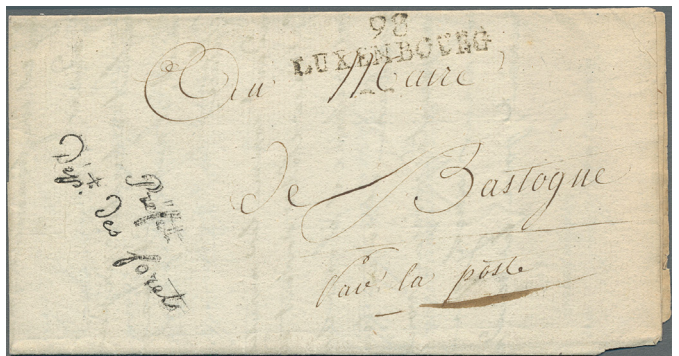 98
LUXEMBOURG
Au Maire
de Bastogne
Par la poste
Préf.t
Dép.t des forêts